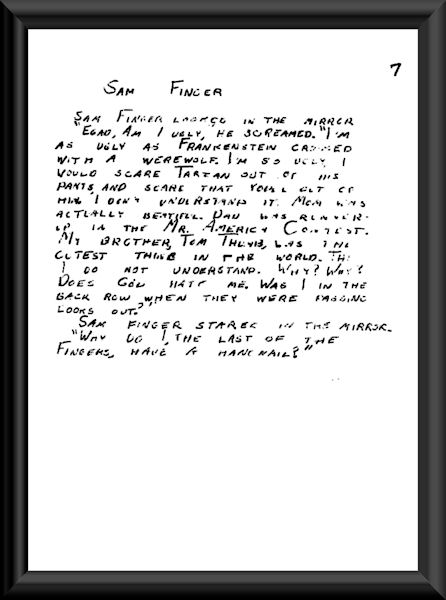 7
SAM FINGER
SAM FINGER LOOKED IN THE MIRROR
"EGAD, AM I UGLY, HE SCREAMED. "I'M
AS UGLY AS FRANKENSTEIN CROSSED
WITH A WEREWOLF. I'M SO UGLY I
WOULD SCARE TARZAN OUT OF HIS
PANTS AND SCARE THAT YOUELL OUT OF
HIM. I DON'T UNDERSTAND IT. MOM WAS
ACTUALLY BEATIFUL. DAD WAS RUNNER-
UP IN THE MR. AMERICA CONTEST.
MY BROTHER, TOM THUMB, WAS THE
CUTEST THING IN THE WORLD.
I DO NOT UNDERSTAND. WHY? WHY?
DOES GOD HATE ME. WAS I IN THE
BACK ROW WHEN THEY WERE PASSING
LOOKS OUT?"
SAM FINGER STARED IN THE MIRROR.
"WHY DO I, THE LAST OF THE
FINGERS, HAVE A HANGNAIL?"